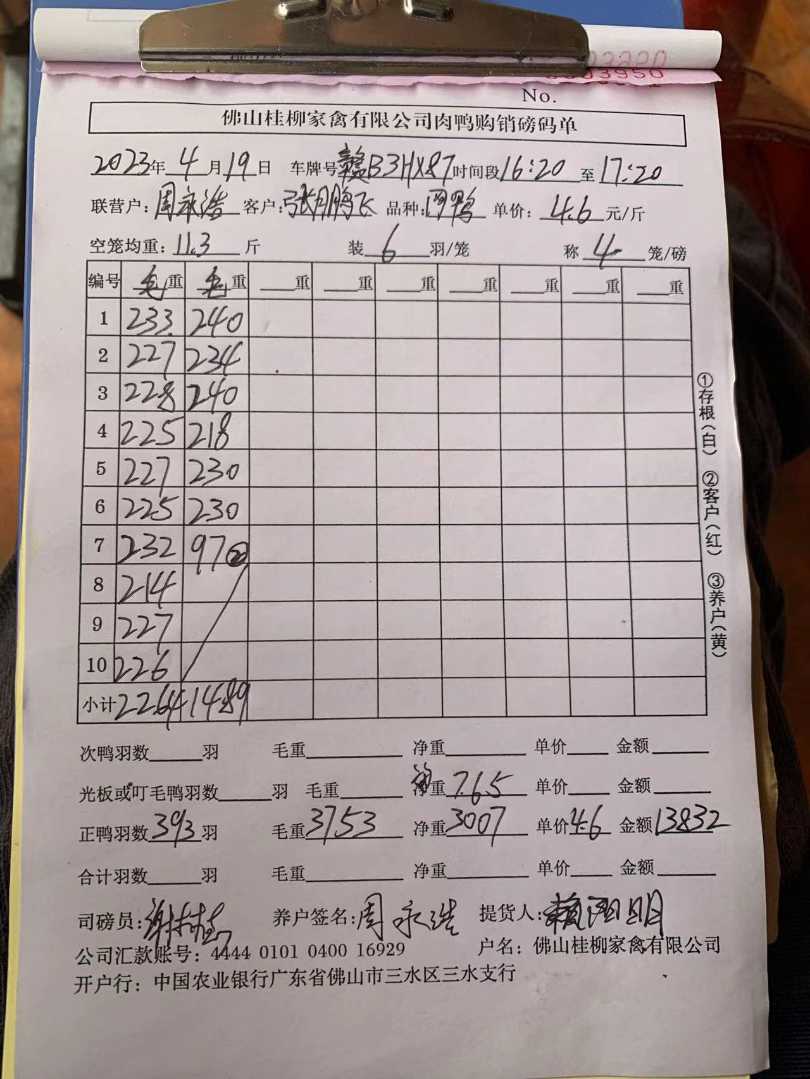 No.
佛山桂柳家禽有限公司肉鸭购销磅码单
2023年4月19日 车牌号赣B3HX87时间段16:20至17:20
联营户:周永浩 客户:张鹏飞 品种: 单价:4.6元/斤
空笼均重:11.3斤 装6羽/笼 称4笼/磅
编号 毛重 毛重 重 重 重 重 重 重 重
1 233 240
2 227 234
3 228 240
4 225 218
5 227 230
6 225 230
7 232 97
8 214
9 227
10 226
小计 2264 1489
次鸭羽数 羽 毛重 净重 单价 金额
光板或叮毛鸭羽数 羽 毛重 净重 7.65 单价 金额
正鸭羽数393羽 毛重3753 净重3007 单价4.6 金额13832
合计羽数 羽 毛重 净重 单价 金额
司磅员: 养户签名:周永浩 提货人:
公司汇款账号:4444 0101 0400 16929 户名:佛山桂柳家禽有限公司
开户行:中国农业银行广东省佛山市三水区三水支行
①存根(白) ②客户(红) ③养户(黄)